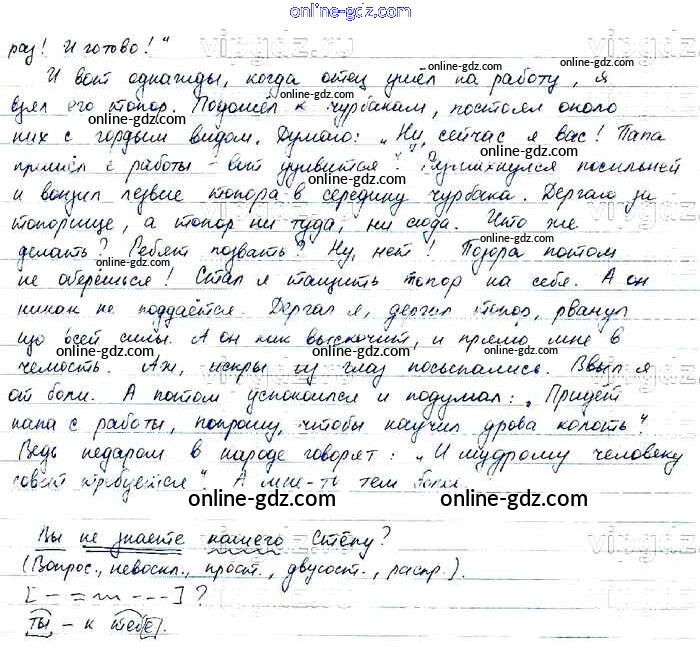 online-gdz.com
раз! И готово!"
И вот однажды, когда отец ушёл на работу, я
взял его топор. Подошёл к чурбакам, постоял около
них с гордым видом. Думаю: „Ну, сейчас я вас! Папа
пришёл с работы – вот удивится!" Размахнулся посильней
и вонзил лезвие топора в середину чурбака. Дергаю за
топорище, а топор ни туда, ни сюда. Что же
делать? Ребят позвать? Ну, нет! Позора потом
не оберёшься! Стал я тащить топор на себя. А он
никак не поддаётся. Дергал я, дергал топор, рванул
що всей силы. А он как выскочит, и прямо мне в
челюсть. Аж, искры из глаз посыпались. Взвыл я
от боли. А потом успокоился и подумал: „Придёт
папа с работы, попрошу, чтобы научил дрова колоть".
Ведь недаром в народе говорят: „И мудрому человеку
совет требуется". А мне-то тем более.
Вы не знаете нашего Стёпу?
(Вопрос., невоскл., прост., двусост., распр.).
[– = ~~~ ---]?
ты – к тебе.